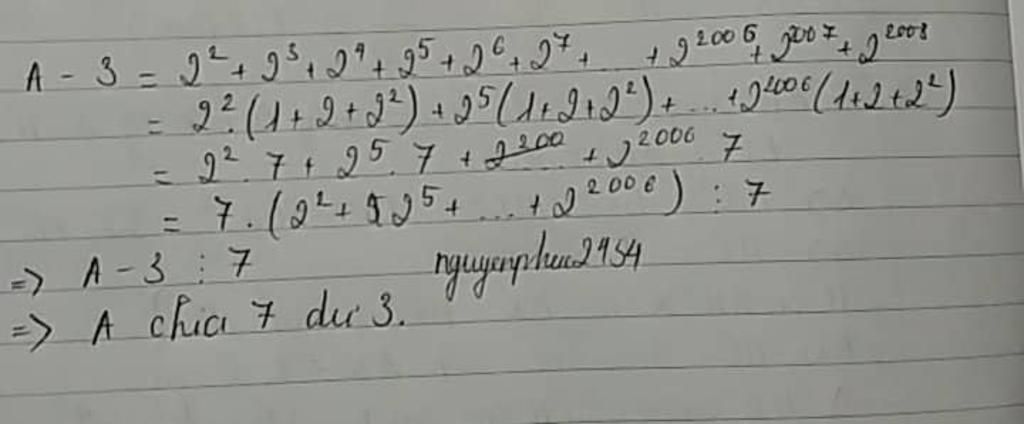 A - 3 = 2² + 2³ + 2⁴ + 2⁵ + 2⁶ + 2⁷ + ... + 2²⁰⁰⁶ + 2²⁰⁰⁷ + 2²⁰⁰⁸
= 2².(1 + 2 + 2²) + 2⁵(1 + 2 + 2²) + ... + 2²⁰⁰⁶(1 + 2 + 2²)
= 2².7 + 2⁵.7 + ... + 2²⁰⁰⁶.7
= 7.(2² + 2⁵ + ... + 2²⁰⁰⁶) ⋮ 7
=> A - 3 ⋮ 7 nguyenphuc2454
=> A chia 7 dư 3.